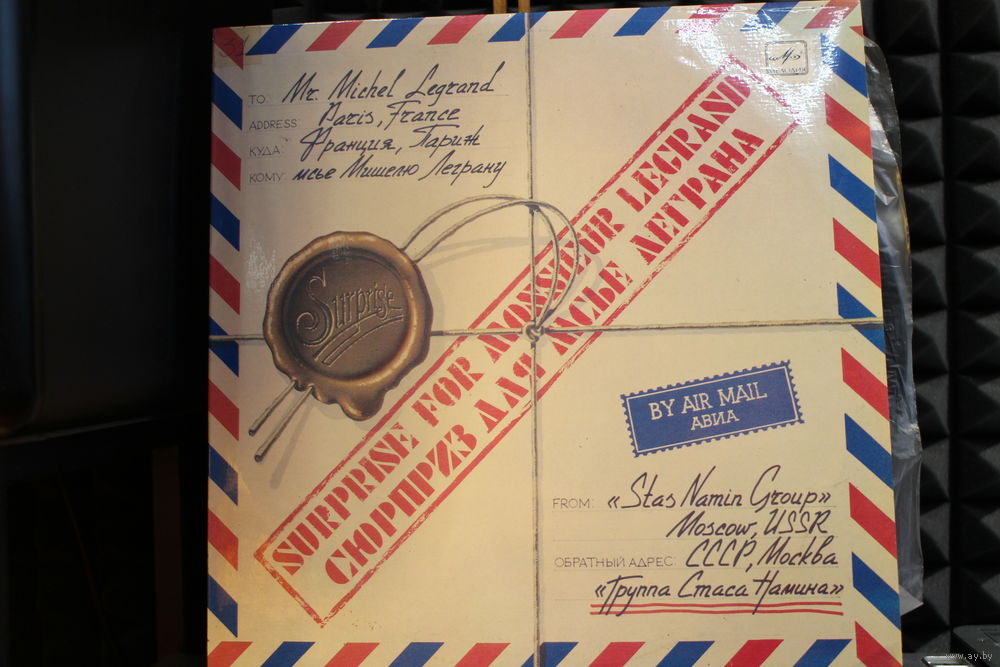 TO: Mr. Michel Legrand
ADDRESS: Paris, France
КУДА: Франция, Париж
КОМУ: мсье Мишелю Леграну
МЕЛОДИЯ
Surprise
SURPRISE FOR MONSIEUR LEGRAND
СЮРПРИЗ ДЛЯ МСЬЕ ЛЕГРАНА
BY AIR MAIL
АВИА
FROM: «Stas Namin Group»
Moscow, USSR
ОБРАТНЫЙ АДРЕС: СССР, Москва
«Группа Стаса Намина»
www.ay.by